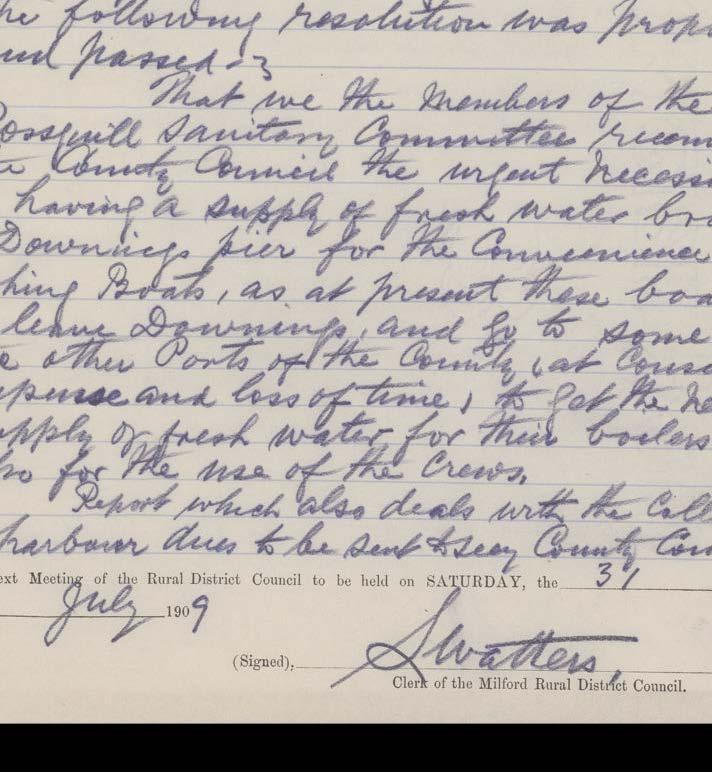 he following resolution was propo
and passed :-
That we the Members of the
Rossguill Sanitary Committee recom
County Council the urgent necessi
having a supply of fresh water bro
Downings pier for the Convenience
hing Boats, as at present these boa
leave Downings, and go to some
e other Ports of the County, at Cons
xpense and loss of time, to get the ne
upply of fresh water for their boilers
lso for the use of the Crews.
Report which also deals with the Coll
harbour dues to be sent to Secy County Cou
ext Meeting of the Rural District Council to be held on SATURDAY, the 31
July 1909
(Signed), S Watters,
Clerk of the Milford Rural District Council.